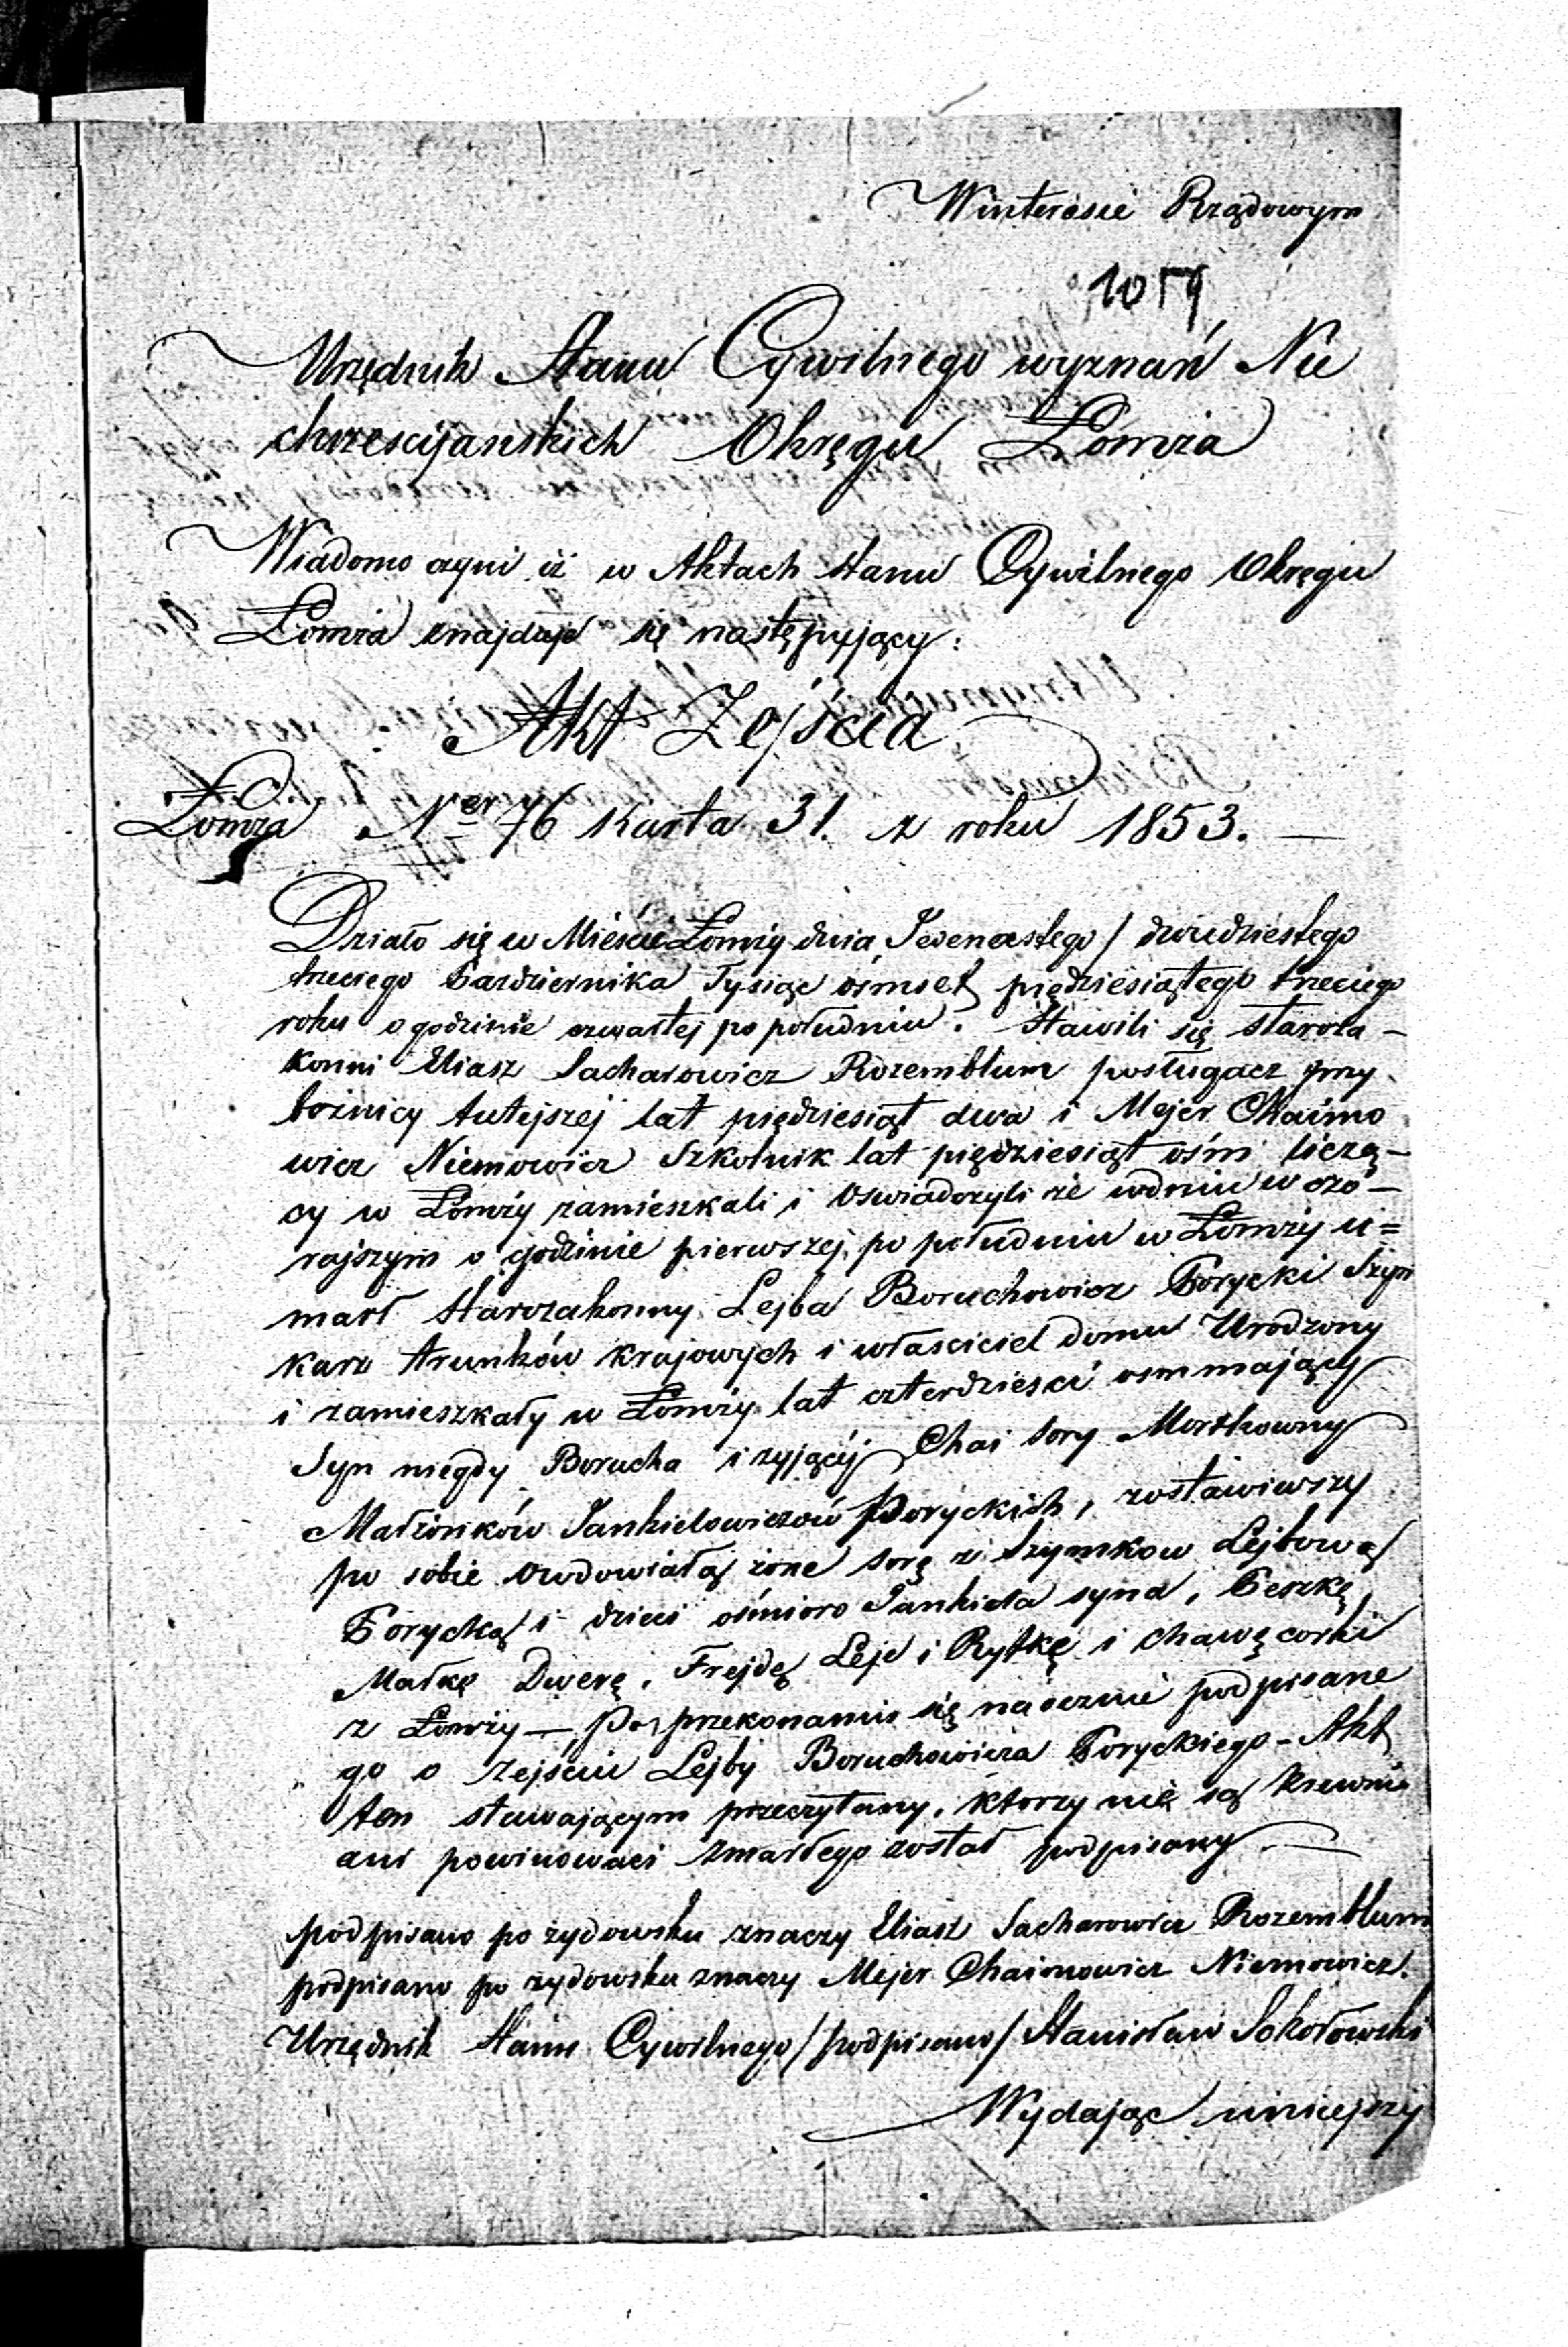 W interesie Rządowym
1059
Urzędnik Stanu Cywilnego wyznań Nie
chrzescijanskich Okręgu Łomża
Wiadomo czyni iż w Aktach Stanu Cywilnego Okręgu
Łomża znajduje się następujący:
Akt Zejścia
Łomża Ner 76 Karta 31. z roku 1853. —
Działo się w Mieście Łomży dnia Jedenastego / dwudziestego
trzeciego Pazdziernika Tysiąc ośmset pięćdziesiątego trzeciego
roku o godzinie czwartej po południu. Stawili się staroza-
konni Eliasz Sacharowicz Rozemblum posługacz przy
bożnicy tutejszej lat pięćdziesiąt dwa i Mejer Chaimo
wicz Niemowicz Szkolnik lat pięćdziesiąt ośm liczą-
cy w Łomży zamieszkali i Oswiadczyli że w dniu wczo-
rajszym o godzinie pierwszej po południu w Łomży u=
marł Starozakonny Lejba Boruchowicz Porycki Szyn
karz trunków krajowych i własciciel domu Urodzony
i zamieszkały w Łomży lat czterdziesci osm mający
Syn niegdy Borucha i zyjącéj Chai Sory Mortkowny
Małżonków Jankielowiczow Poryckich, zostawiwszy
po sobie Owdowiałą żone Sorę z Szymkow Lejbową
Porycką i dzieci ośmioro Jankiela syna, Peszkę,
Małkę Dwerę, Frejdę Leje i Rytkę i chawę corki
z Łomży — Po przekonaniu się naocznie podpisane
go o zejściu Lejby Boruchowicza Poryckiego - Akt
ten stawającym przeczytany, którzy nie są krewnie
ani powinowaci zmarłego został podpisany. —
podpisano po żydowsku znaczy Eliasz Sacharowicz Rozemblum
podpisano po żydowsku znaczy Mejer Chaimowicz Niemowicz.
Urzędnik Stanu Cywilnego /podpisano/ Stanisław Sokołowski
Wydając niniejszy